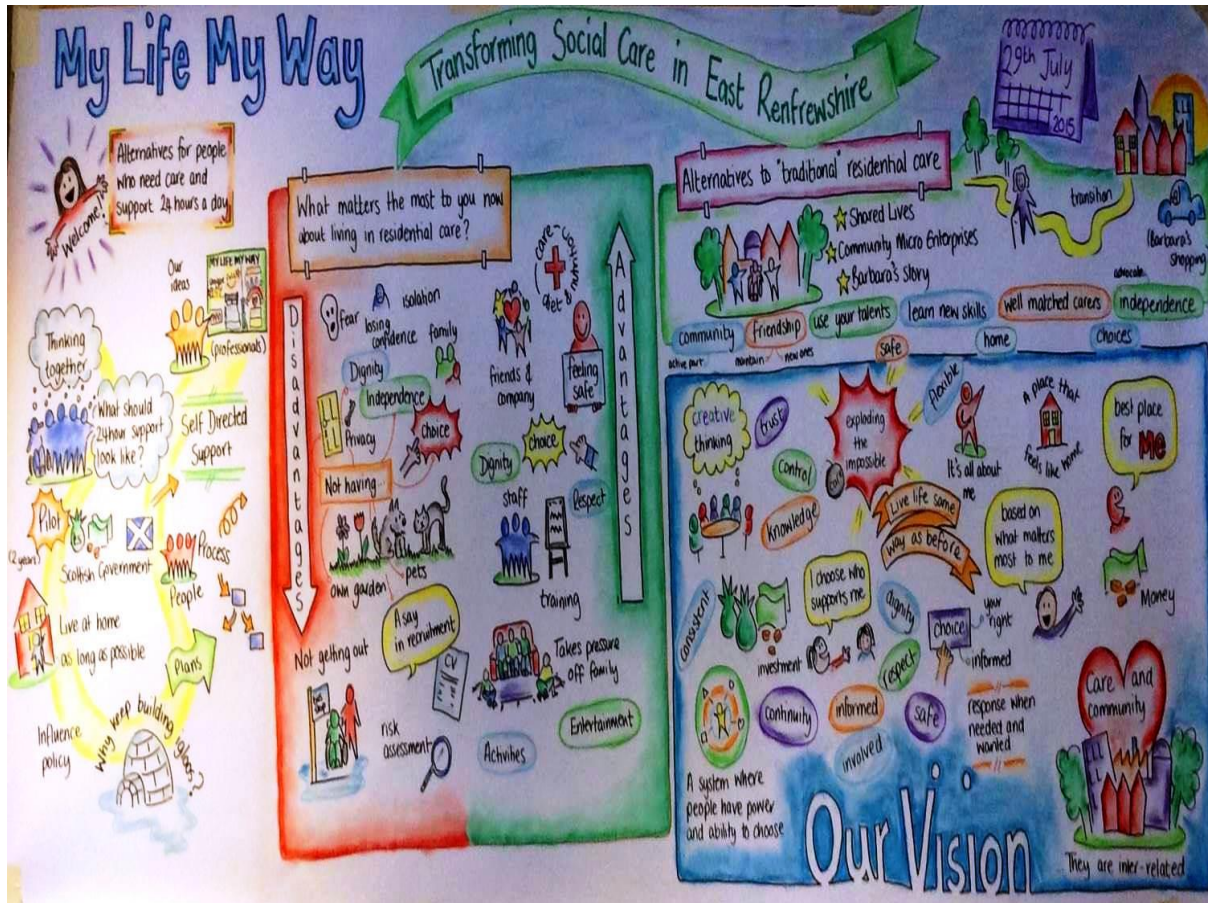 My Life My Way
Transforming Social Care in East Renfrewshire
29th July
2015
Welcome!
Alternatives for people
who need care and
support 24 hours a day
Our
ideas
MY LIFE MY WAY
(professionals)
Thinking
together
What should
24hour support
look like?
Self Directed
Support
Pilot
(2 years)
Scottish Government
Process
People
Live at home
as long as possible
Plans
Influence
policy
Why keep building
igloos?
What matters the most to you now
about living in residential care?
Disadvantages
fear
isolation
losing
confidence
family
Dignity
Independence
Privacy
choice
Not having...
own garden
pets
A say
in recruitment
CV
Not getting out
risk
assessment
Advantages
care-
nutrition
diet
friends &
company
feeling
safe
Dignity
choice
Respect
staff
training
Takes pressure
off family
Entertainment
Activities
Alternatives to "traditional" residential care
Shared Lives
Community Micro Enterprises
Barbara's Story
transition
(Barbara's
shopping)
advocate
community
friendship
use your talents
learn new skills
well matched carers
independence
active part
maintain
new ones
safe
home
choices
creative
thinking
trust
control
knowledge
exploding
the
impossible
flexible
It's all about
me
A place that
feels like home
best place
for Me
Live life same
way as before
based on
what matters
most to me
Money
consistent
investment
I choose who
supports me
dignity
respect
choice
your
right
informed
continuity
informed
involved
safe
response when
needed and
wanted
A system where
people have power
and ability to choose
Our Vision
Care and
community
They are inter-related